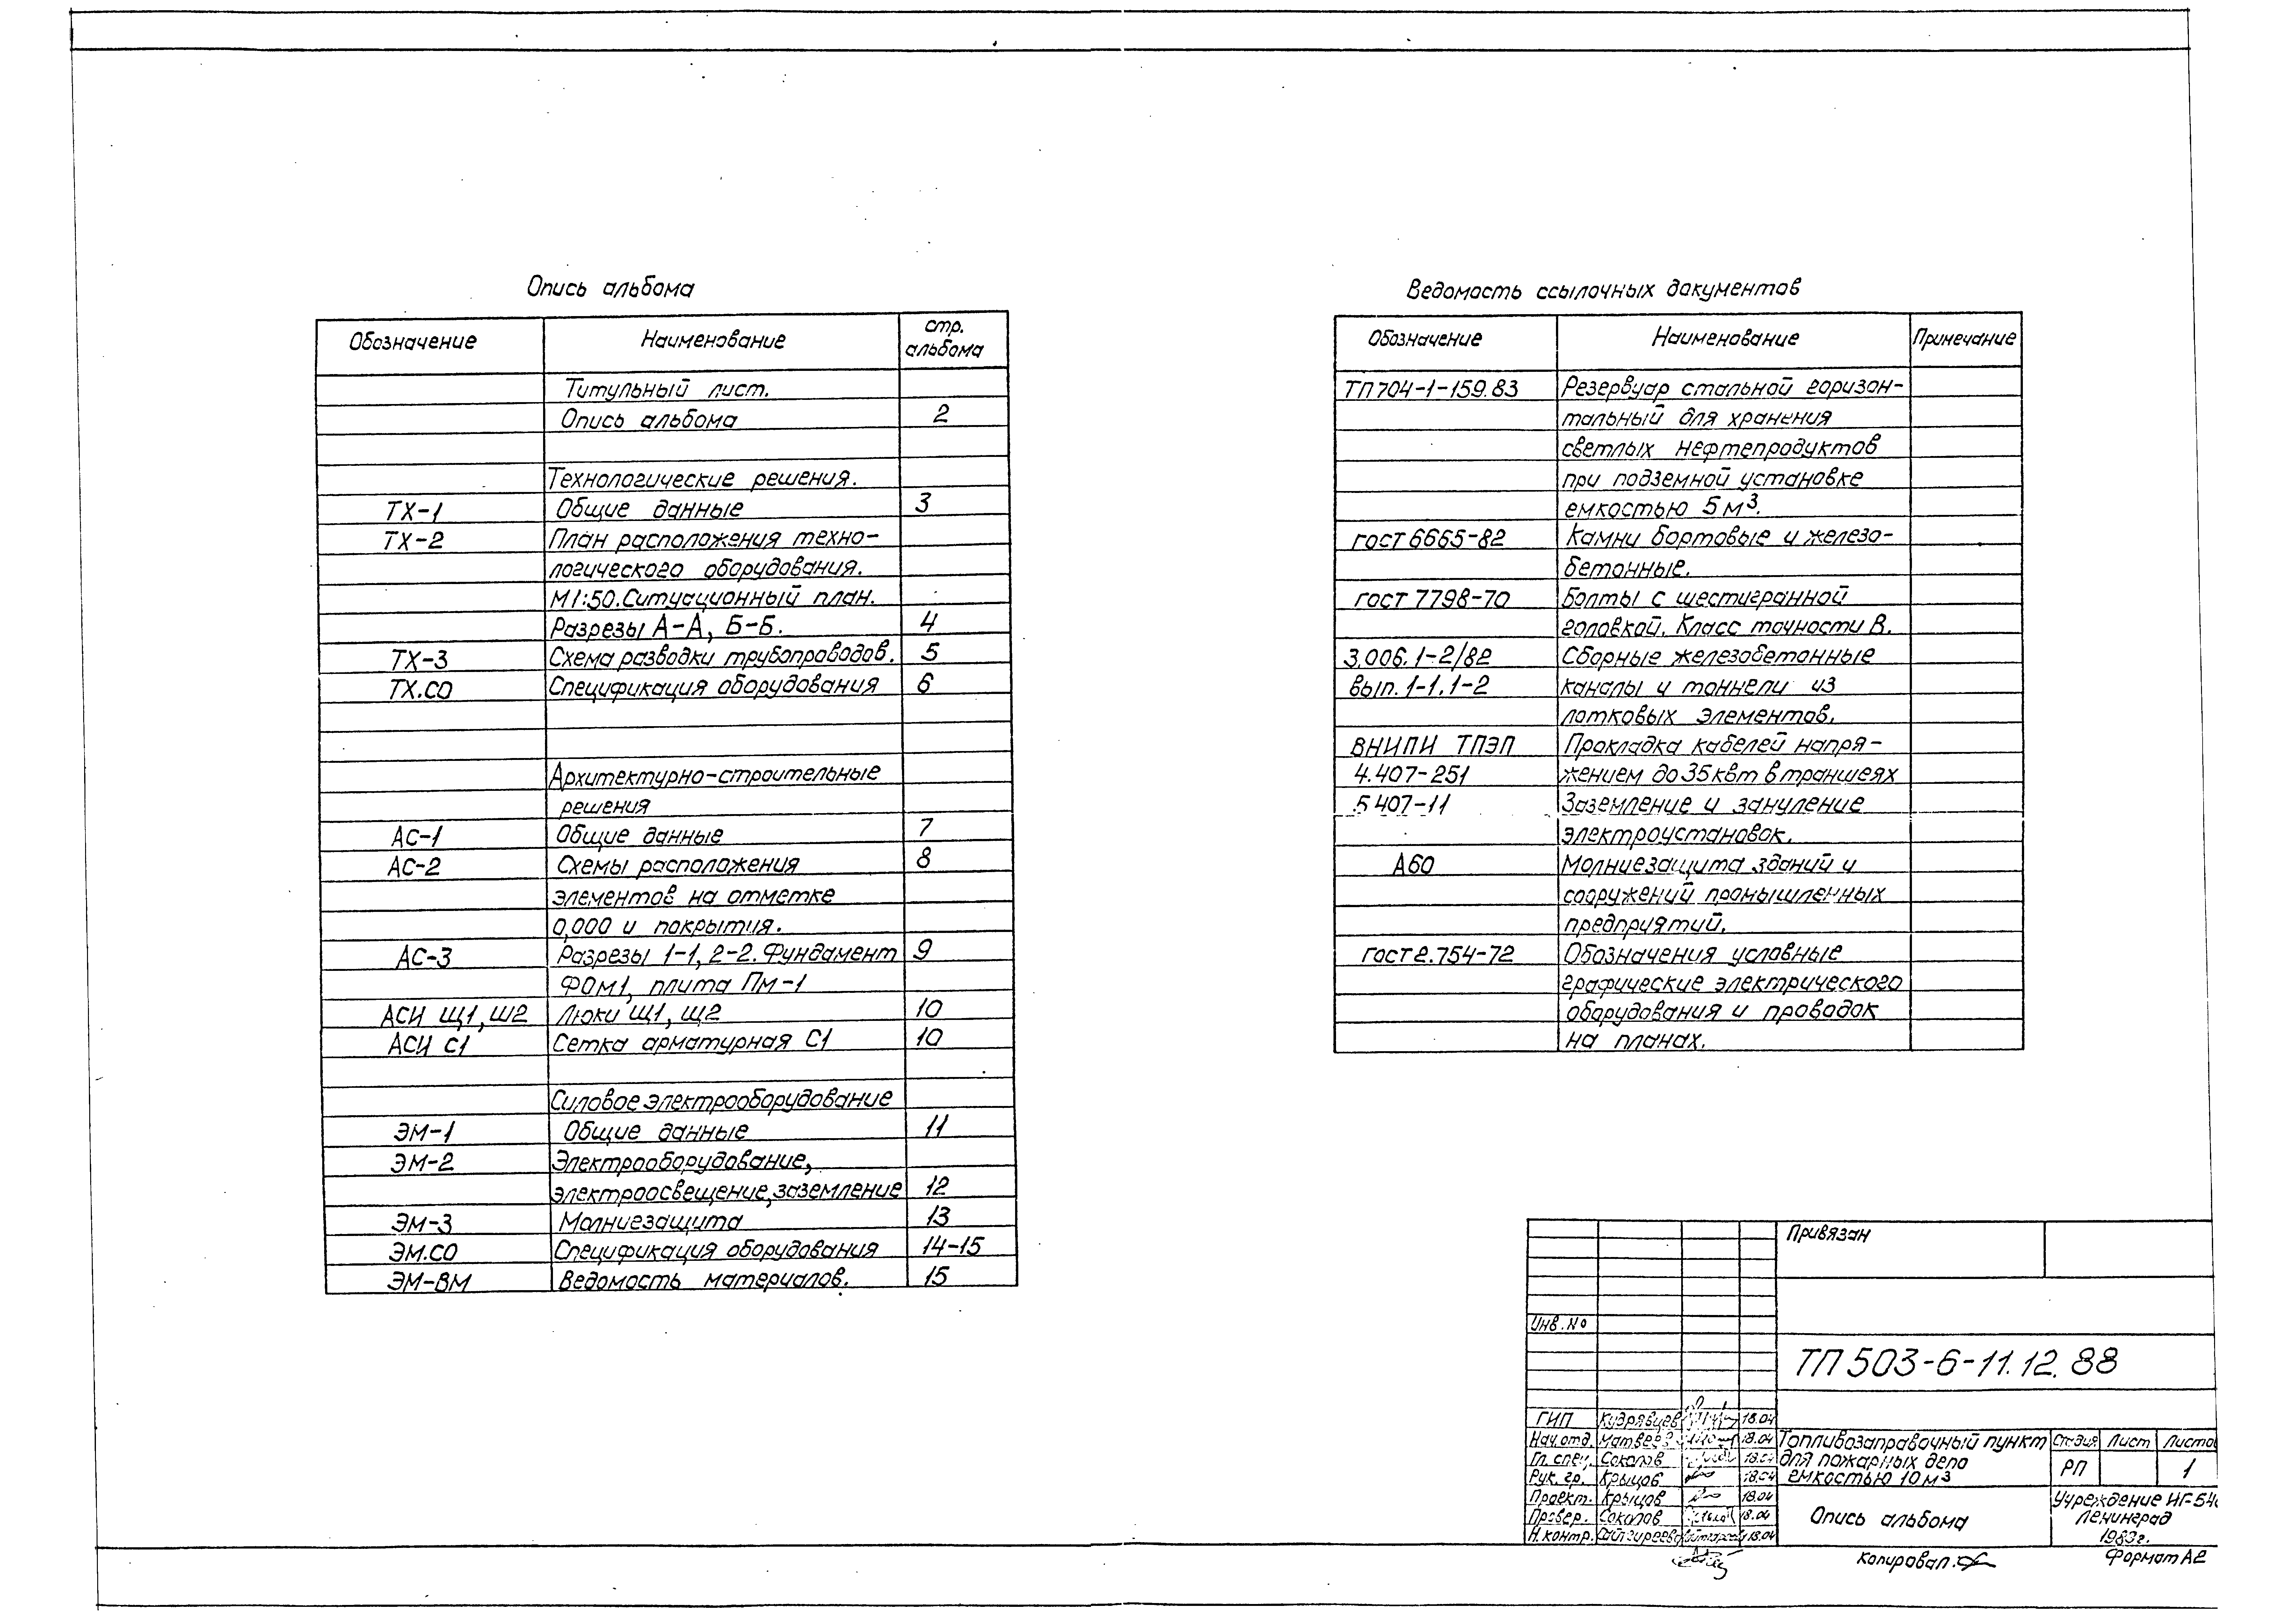 Опись альбома
Обозначение Наименование стр. альбома
Титульный лист.
Опись альбома 2
Технологические решения.
ТХ-1 Общие данные 3
ТХ-2 План расположения техно-
логического оборудования.
М1:50. Ситуационный план.
Разрезы А-А, Б-Б. 4
ТХ-3 Схема разводки трубопроводов. 5
ТХ.СО Спецификация оборудования 6
Архитектурно-строительные
решения
АС-1 Общие данные 7
АС-2 Схемы расположения 8
элементов на отметке
0,000 и покрытия.
АС-3 Разрезы 1-1, 2-2. Фундамент 9
ФОМ1, плита Пм-1
АСИ Щ1, Щ2 Люки Щ1, Щ2 10
АСИ С1 Сетка арматурная С1 10
Силовое электрооборудование
ЭМ-1 Общие данные 11
ЭМ-2 Электрооборудование,
электроосвещение, заземление 12
ЭМ-3 Молниезащита 13
ЭМ.СО Спецификация оборудования 14-15
ЭМ-ВМ Ведомость материалов. 15
Ведомость ссылочных документов
Обозначение Наименование Примечание
ТП 704-1-159.83 Резервуар стальной горизон-
тальный для хранения
светлых нефтепродуктов
при подземной установке
емкостью 5 м³.
гост 6665-82 Камни бортовые и железо-
бетонные.
гост 7798-70 Болты с шестигранной
головкой. Класс точности В.
3.006.1-2/82 Сборные железобетонные
вып. 1-1, 1-2 каналы и тоннели из
лотковых элементов.
ВНИПИ ТПЭП Прокладка кабелей напря-
4.407-251 жением до 35 квт в траншеях
5 407-11 Заземление и зануление
электроустановок.
А60 Молниезащита зданий и
сооружений промышленных
предприятий.
гост 2.754-72 Обозначения условные
графические электрического
оборудования и проводок
на планах.
Привязан
Инв. №
ТП 503-6-11.12.88
ГИП Кудрявцев 18.04
Нач. отд. Матвеев 18.04
Гл. спец. Соколов 18.04
Рук. гр. Крыцов 18.04
Проект. Крыцов 18.04
Провер. Соколов 18.04
Н. контр. 18.04
Топливозаправочный пункт
для пожарных депо
емкостью 10 м³
Стадия Лист Листо
РП 1
Опись альбома
Учреждение
Ленинград
1983г.
Копировал.
Формат А2